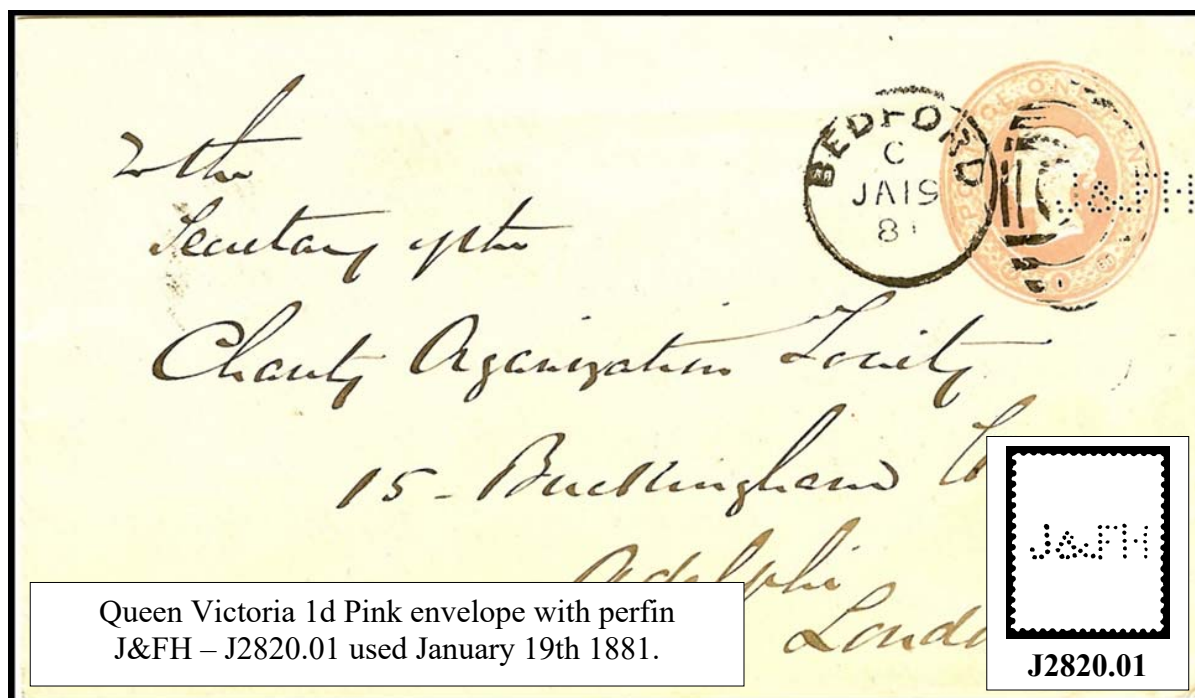 To the
Secretary of the
Charity Organization Society
15 - Buckingham
Adelphi
London
BEDFORD
C
JA 19
81
ONE PENNY
J&FH
J&FH
J2820.01
Queen Victoria 1d Pink envelope with perfin
J&FH – J2820.01 used January 19th 1881.